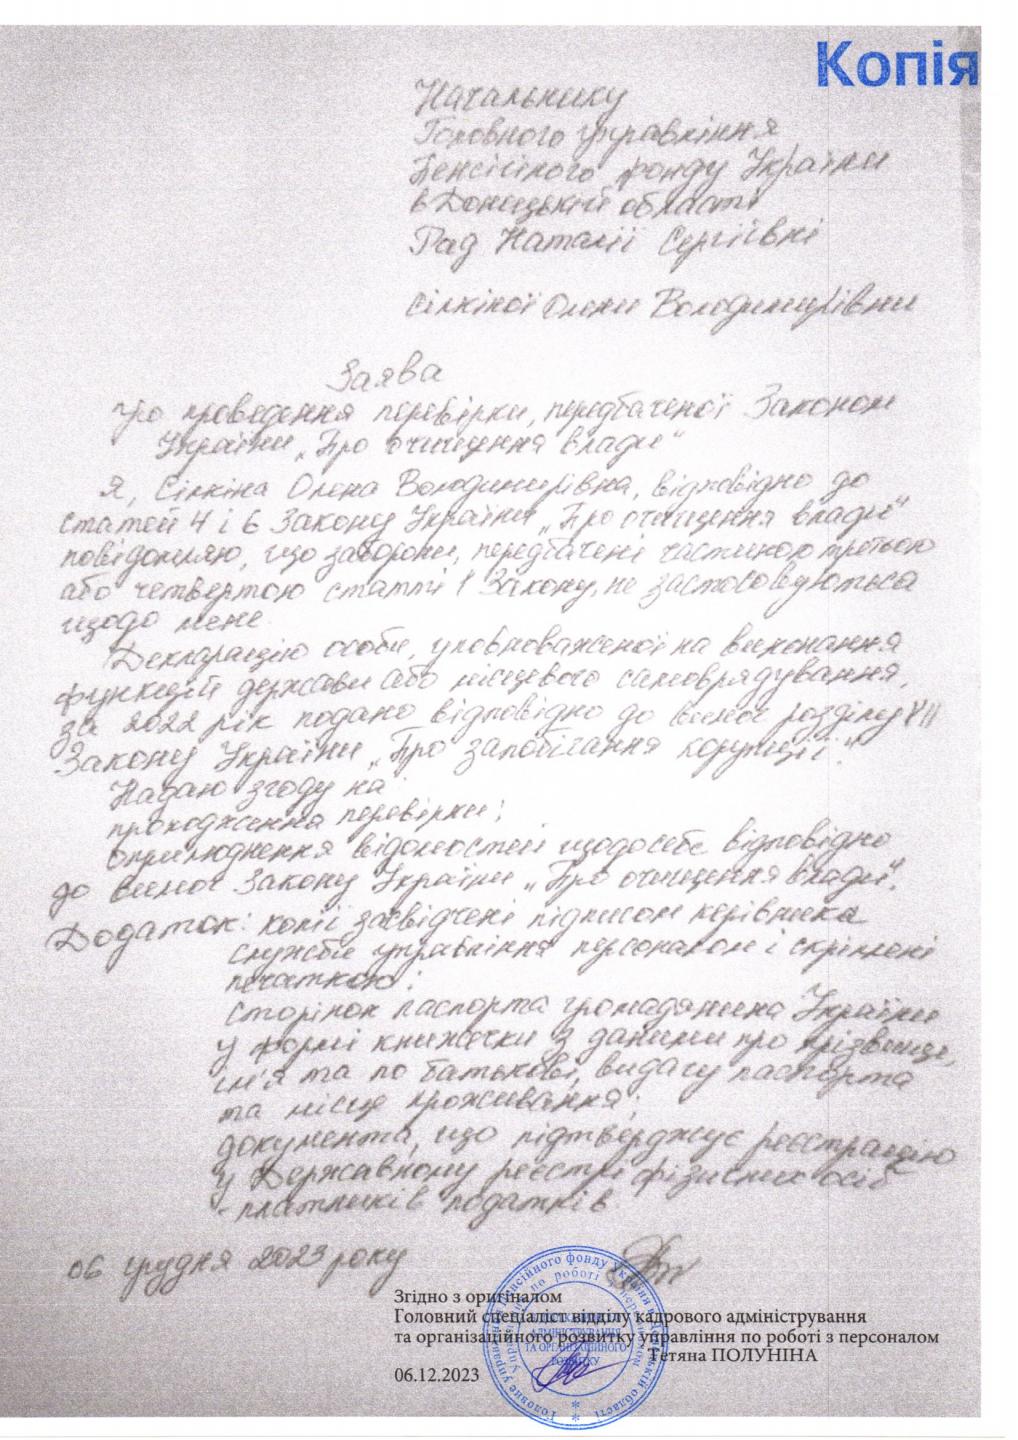 Копія
Начальнику
Головного управління
Пенсійного фонду України
в Донецькій області
Рад Наталії Сергіївні
Сілкіної Олени Володимирівни
Заява
про проведення перевірки, передбаченої Законом
України „Про очищення влади“
Я, Сілкіна Олена Володимирівна, відповідно до
статей 4 і 6 Закону України „Про очищення влади“
повідомляю, що заборони, передбачені частиною третьою
або четвертою статті 1 Закону, не застосовуються
щодо мене.
Декларацію особи, уповноваженої на виконання
функцій держави або місцевого самоврядування,
за 2022 рік подано відповідно до вимог розділу VII
Закону України „Про запобігання корупції“.
Надаю згоду на:
проходження перевірки;
оприлюднення відомостей щодо себе відповідно
до вимог Закону України „Про очищення влади“.
Додаток: копії засвідчені підписом керівника
служби управління персоналом і скріплені
печаткою:
сторінок паспорта громадянина України
у формі книжечки з даними про прізвище,
ім'я та по батькові, видачу паспорта
та місце проживання;
документа, що підтверджує реєстрацію
у Державному реєстрі фізичних осіб
- платників податків.
06 грудня 2023 року
Згідно з оригіналом
Головний спеціаліст відділу кадрового адміністрування
та організаційного розвитку управління по роботі з персоналом
Тетяна ПОЛУНІНА
06.12.2023
Головне управління Пенсійного фонду України в Донецькій області
Управління по роботі з персоналом
АДМІНІСТРУВАННЯ
ТА ОРГАНІЗАЦІЙНОГО
РОЗВИТКУ